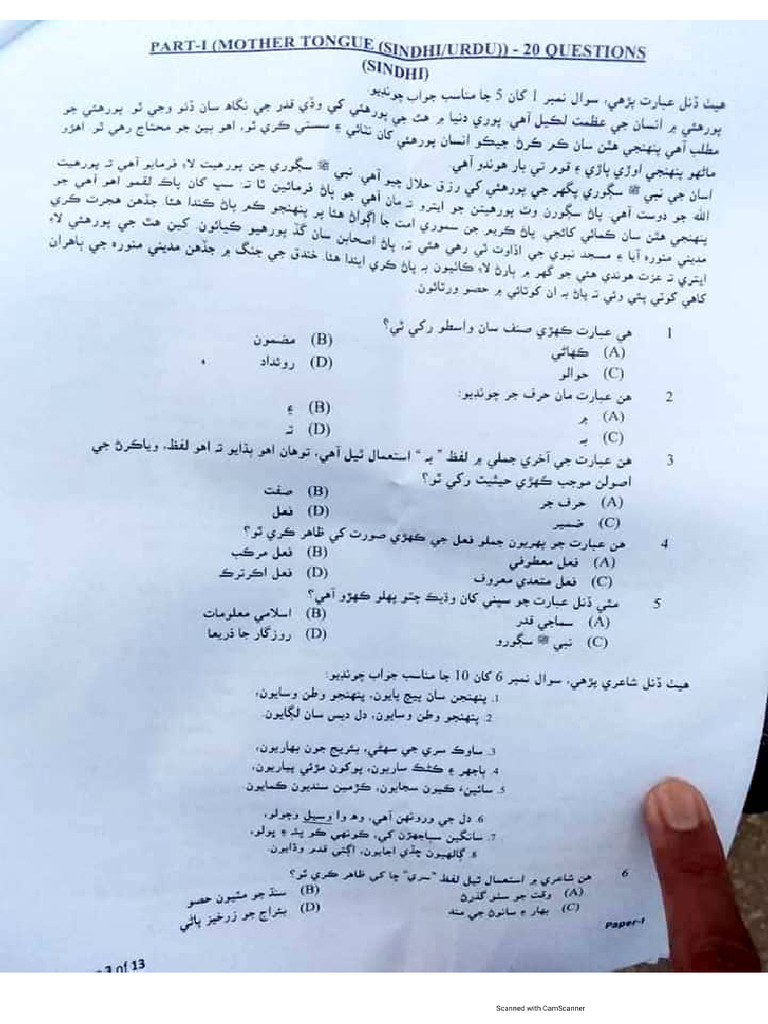 PART-I (MOTHER TONGUE (SINDHI/URDU)) - 20 QUESTIONS
(SINDHI)
هيٺ ڏنل عبارت پڙهي، سوال نمبر 1 کان 5 جا مناسب جواب چونڊيو.
پورهئي ۾ انسان جي عظمت لڪيل آهي. پوري دنيا ۾ هٿ جي پورهئي کي وڏي قدر جي نگاهه سان ڏٺو وڃي ٿو. پورهئي جو
مطلب آهي پنهنجي هٿن سان ڪم ڪرڻ جيڪو انسان پورهئي کان نٽائي ۽ سستي ڪري ٿو، اهو ٻين جو محتاج رهي ٿو. اهڙو
ماڻهو پنهنجي اوڙي پاڙي ۽ قوم تي بار هوندو آهي.
اسان جي نبي ﷺ سڳوري پگهر جي پورهئي کي رزق حلال چيو آهي. نبي ﷺ سڳوري جن پورهيت لاءِ فرمايو آهي ته پورهيت
الله جو دوست آهي. پاڻ سڳورن وٽ پورهيتن جو ايترو ته مان آهي جو پاڻ فرمائين ٿا ته: سڀ کان پاڪ لقمو اهو آهي جو
پنهنجي هٿن سان ڪمائي کائجي. پاڻ ڪريم جن سموري امت جا اڳواڻ هئا پر پنهنجو ڪم پاڻ ڪندا هئا. جڏهن هجرت ڪري
مديني منوره آيا ۽ مسجد نبوي جي اڏاوت ٿي رهي هئي ته، پاڻ اصحابن سان گڏ پورهيو ڪيائون. کين هٿ جي پورهئي لاءِ
ايتري ته عزت هوندي هئي جو گهر ۾ ٻارڻ لاءِ ڪاٺيون به پاڻ ڪري ايندا هئا. خندق جي جنگ ۾ جڏهن مديني منوره جي ٻاهران
کاهي کوٽي پئي وئي ته پاڻ به ان کوٽائي ۾ حصو ورتائون.
1 هي عبارت ڪهڙي صنف سان واسطو رکي ٿي؟
(A) ڪهاڻي (B) مضمون
(C) حوالو (D) روئداد
2 هن عبارت مان حرف جر چونڊيو:
(A) ۾ (B) ۽
(C) به (D) ته
3 هن عبارت جي آخري جملي ۾ لفظ "به" استعمال ٿيل آهي، توهان اهو ٻڌايو ته اهو لفظ، وياڪرڻ جي
اصولن موجب ڪهڙي حيثيت رکي ٿو؟
(A) حرف جر (B) صفت
(C) ضمير (D) فعل
4 هن عبارت جو پهريون جملو فعل جي ڪهڙي صورت کي ظاهر ڪري ٿو؟
(A) فعل معطوفي (B) فعل مرڪب
(C) فعل متعدي معروف (D) فعل اڪرترڪ
5 مٿي ڏنل عبارت جو سڀني کان وڌيڪ چٽو پهلو ڪهڙو آهي؟
(A) سماجي قدر (B) اسلامي معلومات
(C) نبي ﷺ سڳورو (D) روزگار جا ذريعا
هيٺ ڏنل شاعري پڙهي، سوال نمبر 6 کان 10 جا مناسب جواب چونڊيو:
1. پنهنجن سان پيچ پايون، پنهنجو وطن وسايون،
2. پنهنجو وطن وسايون، دل ديس سان لڳايون.
3. ساوڪ سري جي سهڻي، ٻئريج جون بهاريون،
4. ٻاجهر ۽ ڪڻڪ ساريون، پوکون مڙئي پياريون،
5. سائين، کيون سجايون، ڪڙمين سنديون ڪمايون.
6. دل جي وروڻهن آهي، وهه وا وسيل وڇولو،
7. سانگين سٻاجهڙن کي، ڪونهي ڪو پٽ ۽ پولو،
8. ڳالهيون ڇڏي اجايون، اڳتي قدم وڌايون.
6 هن شاعري ۾ استعمال ٿيل لفظ "سري" ڇا کي ظاهر ڪري ٿو؟
(A) وقت جو سٺو گذرڻ (B) سنڌ جو مٿيون حصو
(C) بهار ۽ سانوڻ جي مند (D) بئراج جو زرخيز پاڻي
Paper-I
3 of 13
Scanned with CamScanner